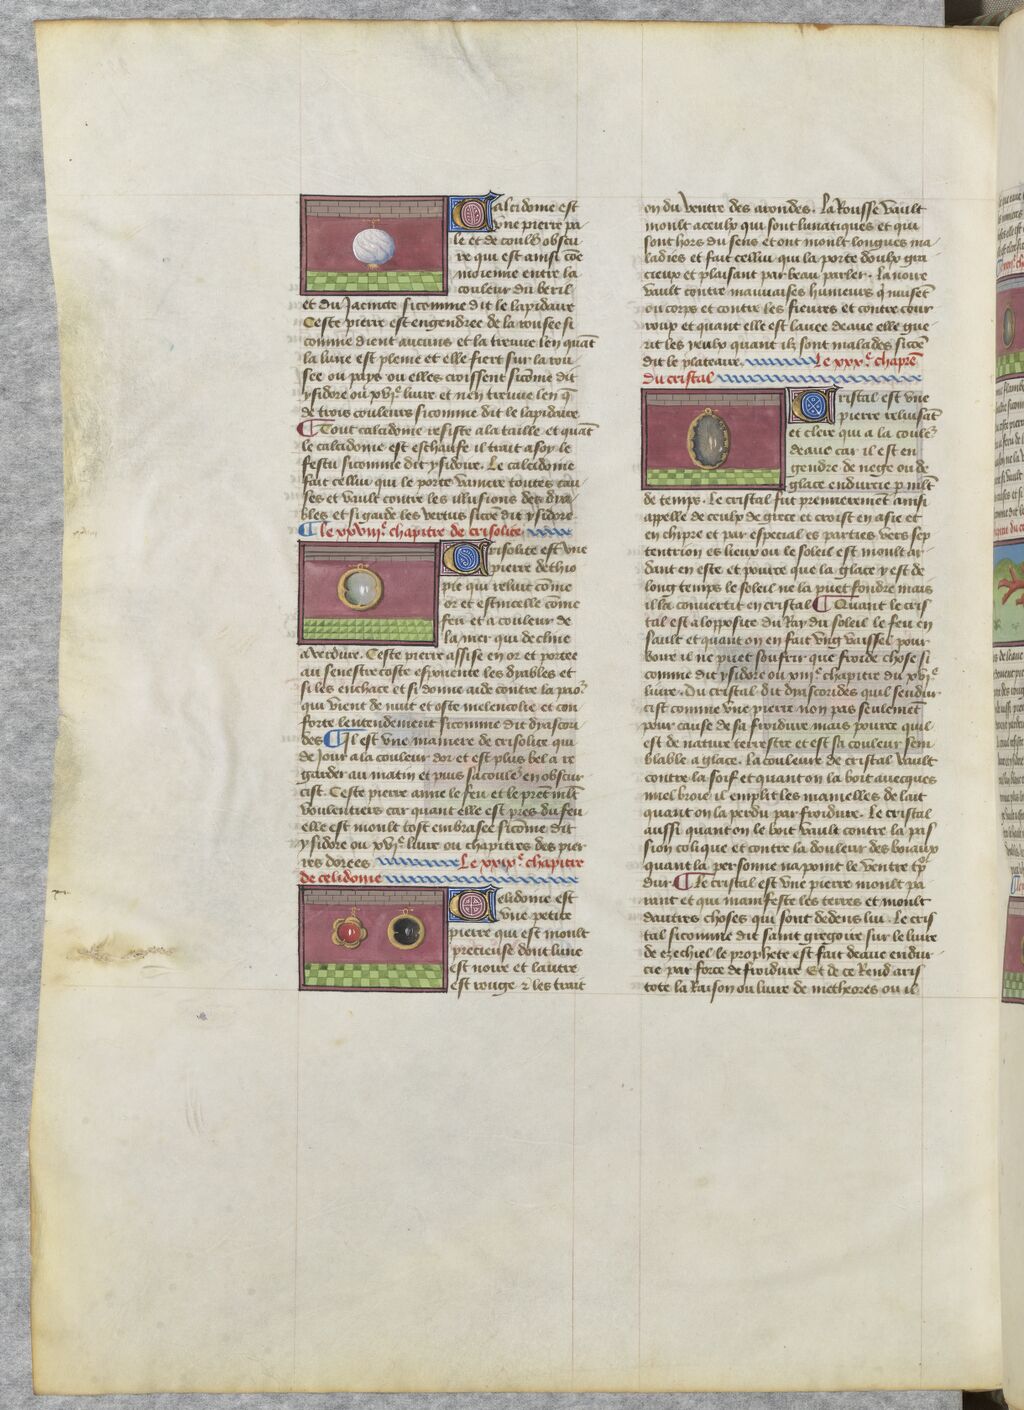 Calcidoine est
vne pierre pa-
le et de coulr̄ obscu-
re qui est ainsi cōe
moienne entre la
couleur du beril
et du Jacincte sicomme dit le lapidaire
Ceste pierre est engendree de la rousee si
comme dient aucuns et la treuue len quāt
la lune est pleine et elle fiert sur la rou-
see ou pays ou elles croissent sicōme dit
ysidore ou xvjͤ liure et nen treuue len q̄
de trois couleurs sicomme dit le lapidaire
¶ Tout calcidoine resiste a la taille et quāt
le calcidoine est eschaufe il trait a soy le
festu sicomme dit ysidore. Le calcidoine
fait cellui qui le porte vaincre toutes cau-
ses et vault contre les illusions des dya-
bles et si garde les vertus sicōe dit ysidore
¶ le xxviijͤ chapitre de crisolite
Crisolite est vne
pierre dethio
pie qui reluit cōme
or et estincelle cōme
feu et a couleur de
la mer qui decline
a verdure. Ceste pierre assise en or et portee
au senestre coste espouente les dyables et
si les enchace et si donne aide contre la pao2
qui vient de nuit et oste melencolie et con
forte lentendement sicomme dit dyascori
des ¶ Il est vne maniere de crisolite qui
de jour a la couleur dor et est plus bel a re
garder au matin et puis sa coulr̄ en obscur-
cist. Ceste pierre aime le feu et le prēt mlt̄
voulentiers car quant elle est pres du feu
elle est moult tost embrasee sicōme dit
ysidore ou xvjͤ liure ou chapitres des pier
res dorees Le xxixͤ chapitre
de celidoine
Celidoine est
vne petite
pierre qui est moult
precieuse dont lune
est noire et lautre
est rouge ⁊ les trait
on du ventre des arondes. La Rousse vault
moult a ceulx qui sont lunatiques et qui
sont hors du sens et ont moult longues ma-
ladies et fait cellui qui la porte doulx gra
cieux et plaisant par beau parler. La noire
vault contre mauuaises humeurs q̄ nuisēt
ou corps et contre les fieures et contre cour
roux et quant elle est lauee deaue elle gue
rit les yeulx quant ilz sont malades sicōe
dit le plateaire. Le xxxͤ chapr̄e
du cristal
Cristal est vne
pierre reluisāt
et clere qui a la coulr̄
deaue car il est en
gendre de nege ou de
glace endurcie p̱ mlt̄
de temps. Le cristal fut premierement ainsi
appelle de ceulx de grece et croist en asie et
en chipre et par especial es parties vers sep
tentrion es lieux ou le soleil est moult ar-
dant en este et pource que la glace y est de
long temps le soleil ne la puet fondre mais
il la conuertit en cristal ¶ Quant le cris
tal est a lopposite du Ray du soleil le feu en
sault et quant on en fait vng vaissel pour
boire il ne puet souffrir que froide chose si
comme dit ysidore ou xiijͤ chapitre du xvjͤ
liure. Du cristal dit dyascorides quil sendur-
cist comme vne pierre non pas seulemēt
pour cause de sa froidure mais pource quil
est de nature terrestre et est sa couleur sem
blable a glace. La couleure de cristal vault
contre la soif et quant on la boit auecques
miel broie il emplit les mamelles de lait
quant on la perdu par froidure. Le cristal
aussi quant on le boit vault contre la pas
sion colique et contre la douleur des boiaux
quant la personne na point le ventre tp̄
dur ¶ Le cristal est vne pierre moult pa
rant et qui manifeste les terres et moult
dautres choses qui sont dedens lui. Le cris
tal sicomme dit saint gregoire sur le liure
de ezechiel le prophete est fait deaue endur-
cie par force de froidure Et de ce Rend aris
tote la Raison ou liure de metheores ou il